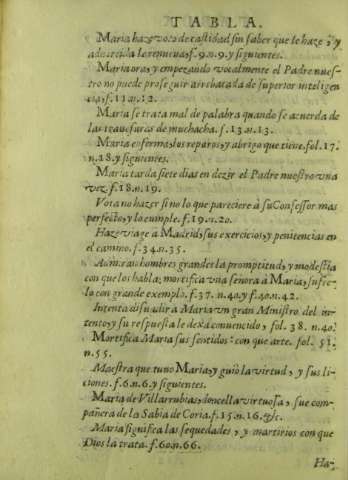 TABLA.
Maria haze voto de castidad sin saber que le haze, y
advertida le renueva, f. 9. n. 9. y siguientes.
Maria ora, y empezando vocalmente el Padre nues-
tro no puede proseguir arrebatada de superior inteligen
cia, f. 11. n. 12.
Maria se trata mal de palabra quando se acuerda de
las travesuras de muchacha. f. 13. n. 13.
Maria enferma, los reparos, y abrigo que tiene. fol. 17.
n. 18. y siguientes.
Maria tarda siete dias en dezir el Padre nuestro una
vez. f. 18. n. 19.
Vota no hazer si no lo que pareciere à su Confessor mas
perfecto, y lo cumple. f. 19. n. 20.
Haze viage à Madrid, sus exercicios, y penitencias en
el camino. f. 34. n. 35.
Admiran hombres grandes la promptitud, y modestia
con que los habla; mortifica una señora à Maria, sufre-
lo con grande exemplo. f. 37. n. 40. y f. 40. n. 42.
Intenta disuadir à Maria un gran Ministro del in-
tento, y su respuesta le dexa convencido, fol. 38. n. 40.
Mortifica Maria sus sentidos: con que arte. fol. 51.
n. 55.
Maestra que tuvo Maria, y guiò la virtud, y sus li-
ciones. f. 6. n. 6. y siguientes.
Maria de Villarrubias, doncella virtuosa, fue com-
pañera de la Sabia de Coria. f. 15. n. 16. &c.
Maria significa las sequedades, y martirios con que
Dios la trata. f. 60. n. 66.
Ha-